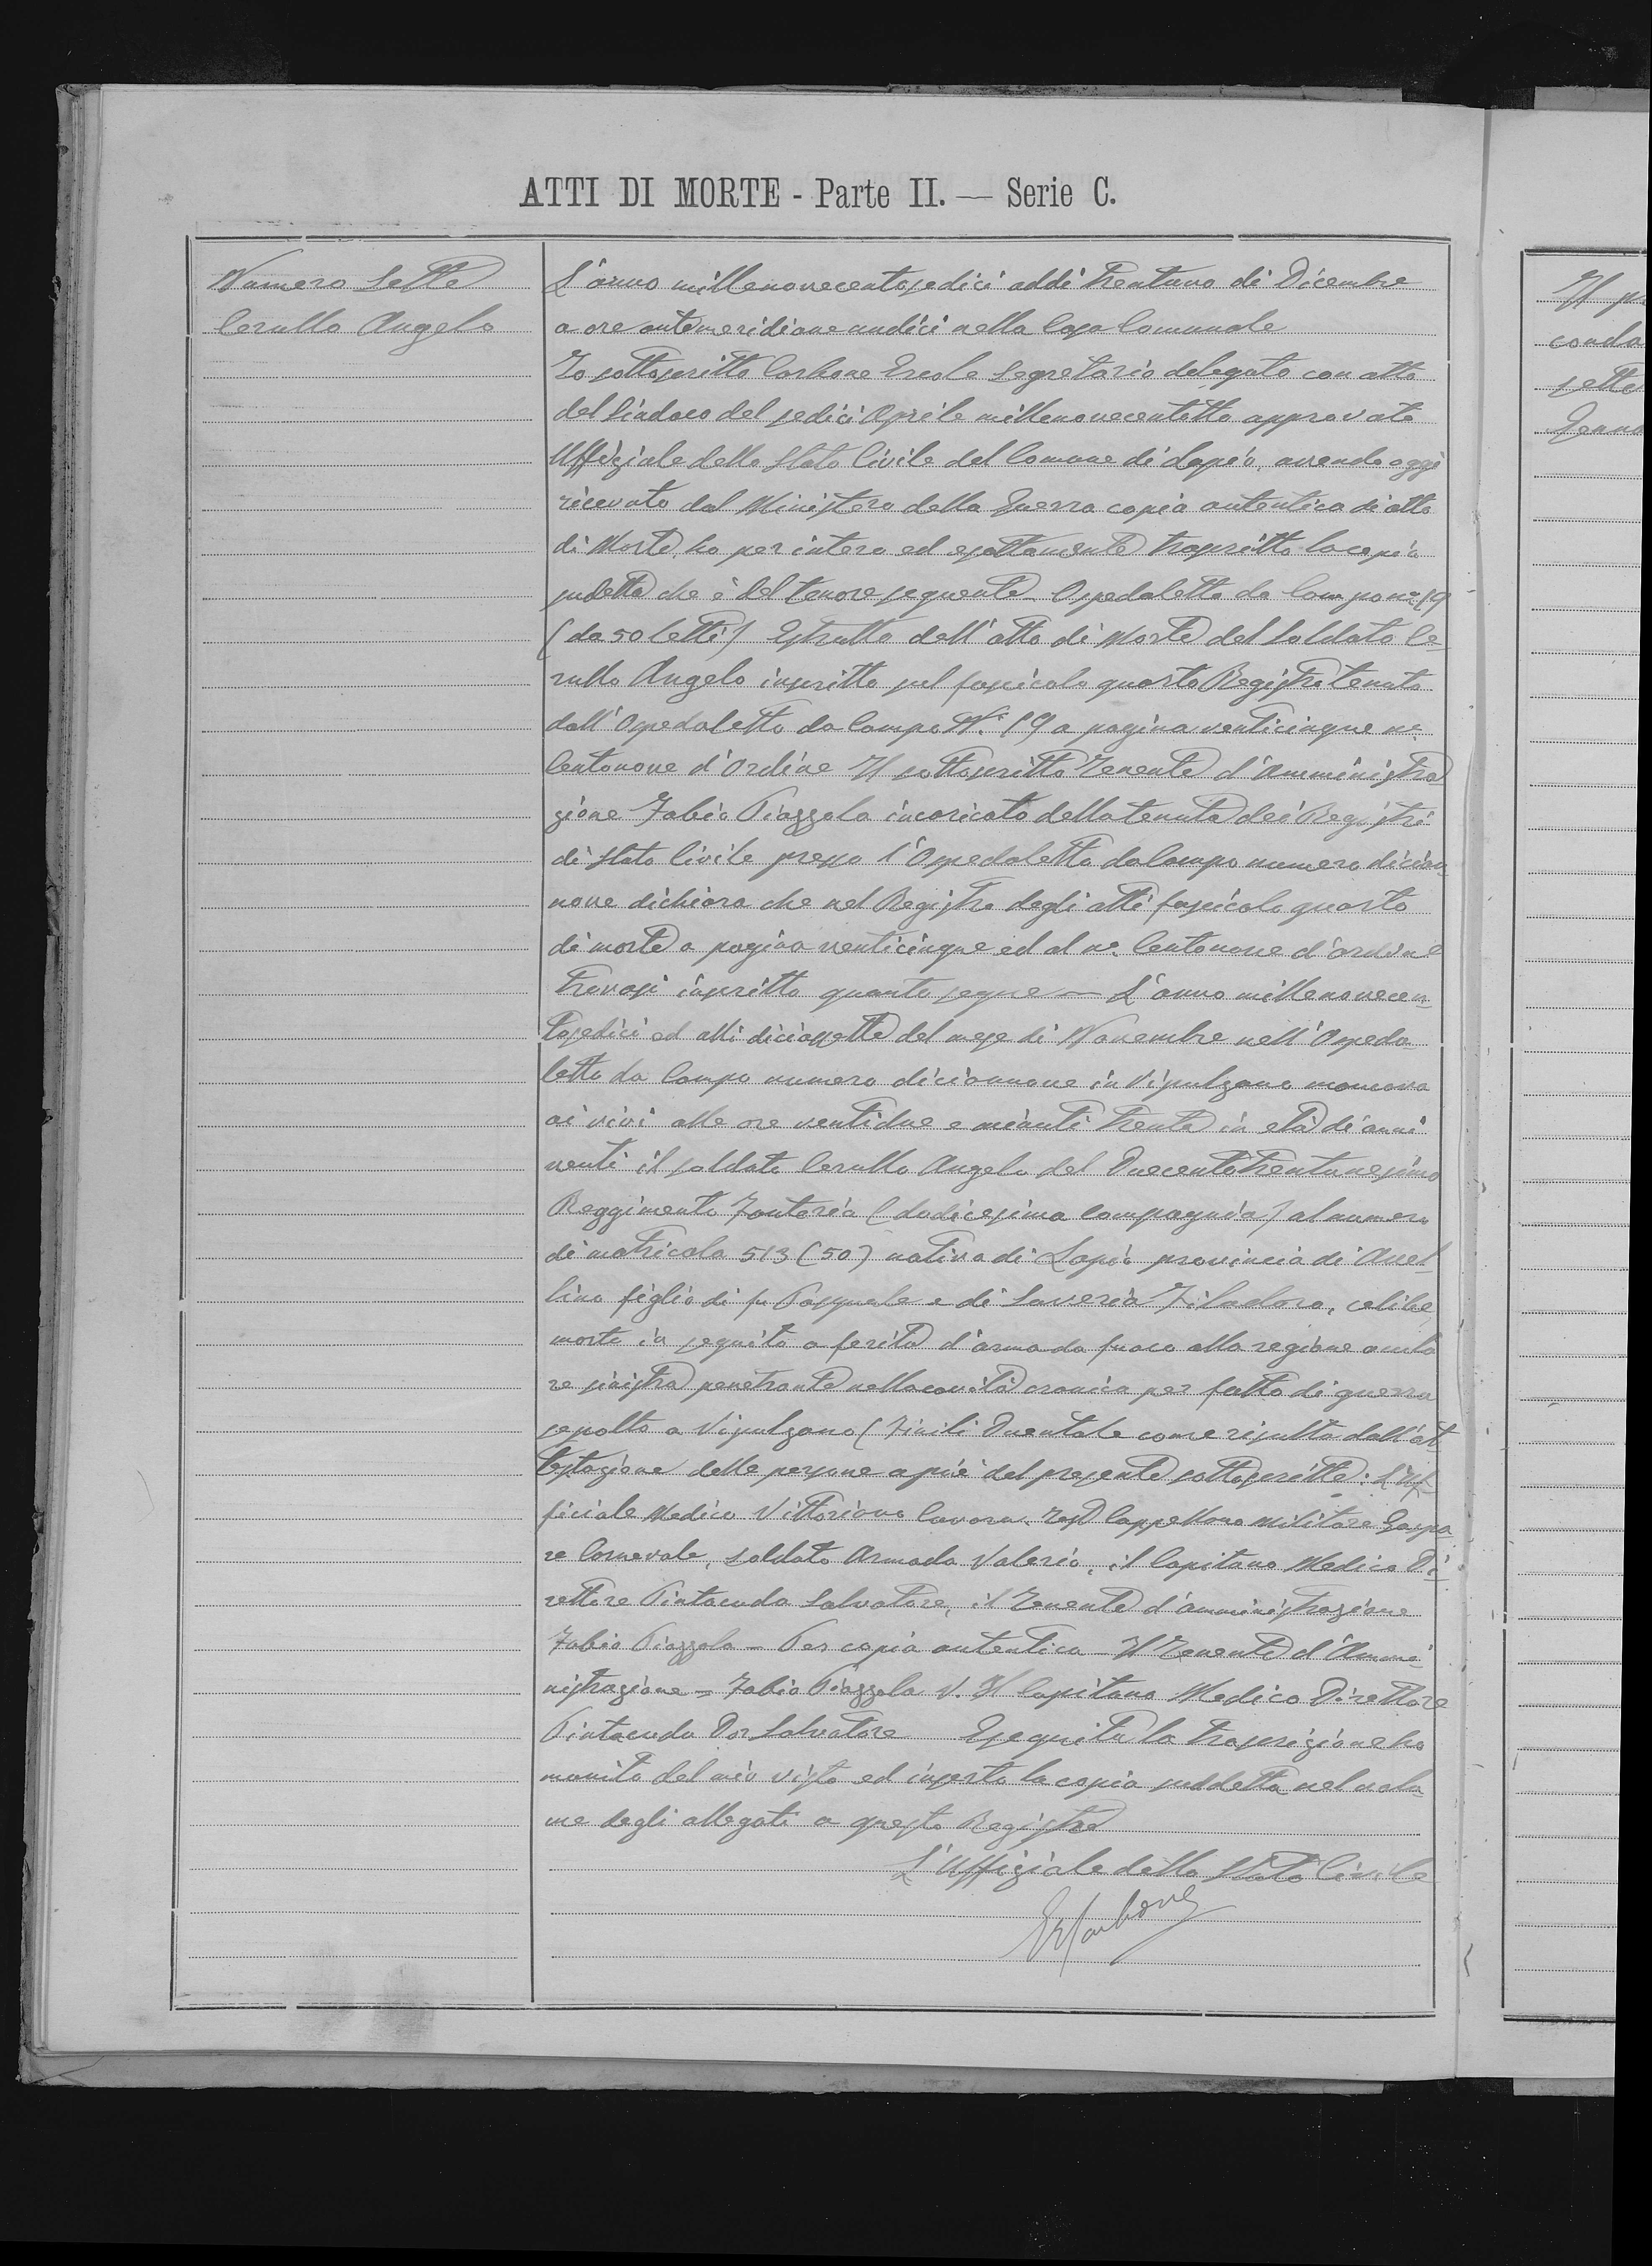 ATTI DI MORTE - Parte II. — Serie C.
Numero Sette
Cerullo Angelo
L'anno millenovecentosedici addì trentuno di Dicembre
a ore antimeridiane undici nella Casa Comunale
Io sottoscritto Carbone Ercole Segretario delegato con atto
del Sindaco del sedici Aprile millenovecentotto approvato
Uffiziale dello Stato Civile del Comune di Lapio, avendo oggi
ricevuto dal Ministero della Guerra copia autentica di atto
di Morte, ho per intero ed esattamente trascritto la copia
sudetta che è del tenore seguente - Ospedaletto da Campo n° 19
(da 50 letti) Estratto dell'atto di Morte del Soldato Ce-
rullo Angelo inscritto sul fascicolo quarto Registro tenuto
dall'Ospedaletto da Campo N° 19 a pagina venticinque n°
Centonove d'Ordine Il sottoscritto Tenente d'Amministra
zione Fabio Piazzola incaricato della tenuta dei Registri
di Stato Civile presso l'Ospedaletto da Campo numero dician
nove dichiara che nel Registro degli atti fascicolo quarto
di morte a pagina venticinque ed al n° Centonove d'ordine
trovasi inscritto quanto segue — L'anno millenovecen-
tosedici ed alli diciassette del mese di Novembre nell'Ospeda-
letto da Campo numero diciannove in Vipulzano mancava
ai vivi alle ore ventidue e minuti trenta in età di anni
venti il soldato Cerullo Angelo del Duecentotrentunesimo
Reggimento Fanteria (dodicesima compagnia) al numero
di matricola 513 (50) nativo di Lapio provincia di Avel-
lino figlio di fu Pasquale e di Saveria Filadoro, celibe,
morto in seguito a ferita d'arma da fuoco alla regione ocula
re sinistra penetrante nella cavità cranica per fatto di guerra
sepolto a Vipulzano (Friuli Orientale come risulta dall'at
testazione delle persone a piè del presente sottoscritte: L'Uf-
ficiale Medico Vittoriano Cavara. Il Cappellano Militare Gaspa
re Carnevale, soldato Armada Valerio, il Capitano Medico Di-
rettore Pintacuda Salvatore, il Tenente d'amministrazione
Fabio Piazzola - Per copia autentica - Il Tenente d'Ammi-
nistrazione = Fabio Piazzola V. Il Capitano Medico Direttore
Pintacuda Dor Salvatore Eseguita la trascrizione ho
munito del mio visto ed inserto la copia suddetta nel volu
me degli allegati a questo Registro
L'Uffiziale dello Stato Civile
E Carbone
Il
conda
sette